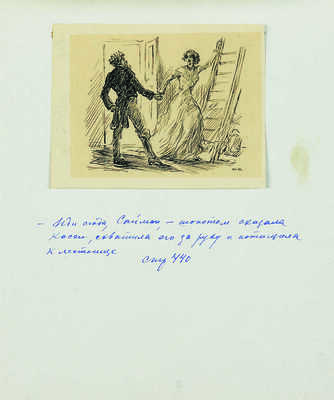 - Иди сюда, Саймон, - шепотом сказала
Касси, схватила его за руку и потащила
к лестнице
стр 440